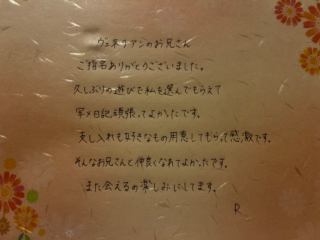 ヴェネチアンのお兄さん
ご指名ありがとうございました。
久しぶりの遊びで私を選んでもらえて
写メ日記頑張ってよかったです。
差し入れも好きなもの用意してもらって感激です。
そんなお兄さんと仲良くなれてよかったです。
また会えるの楽しみにしてます。
R